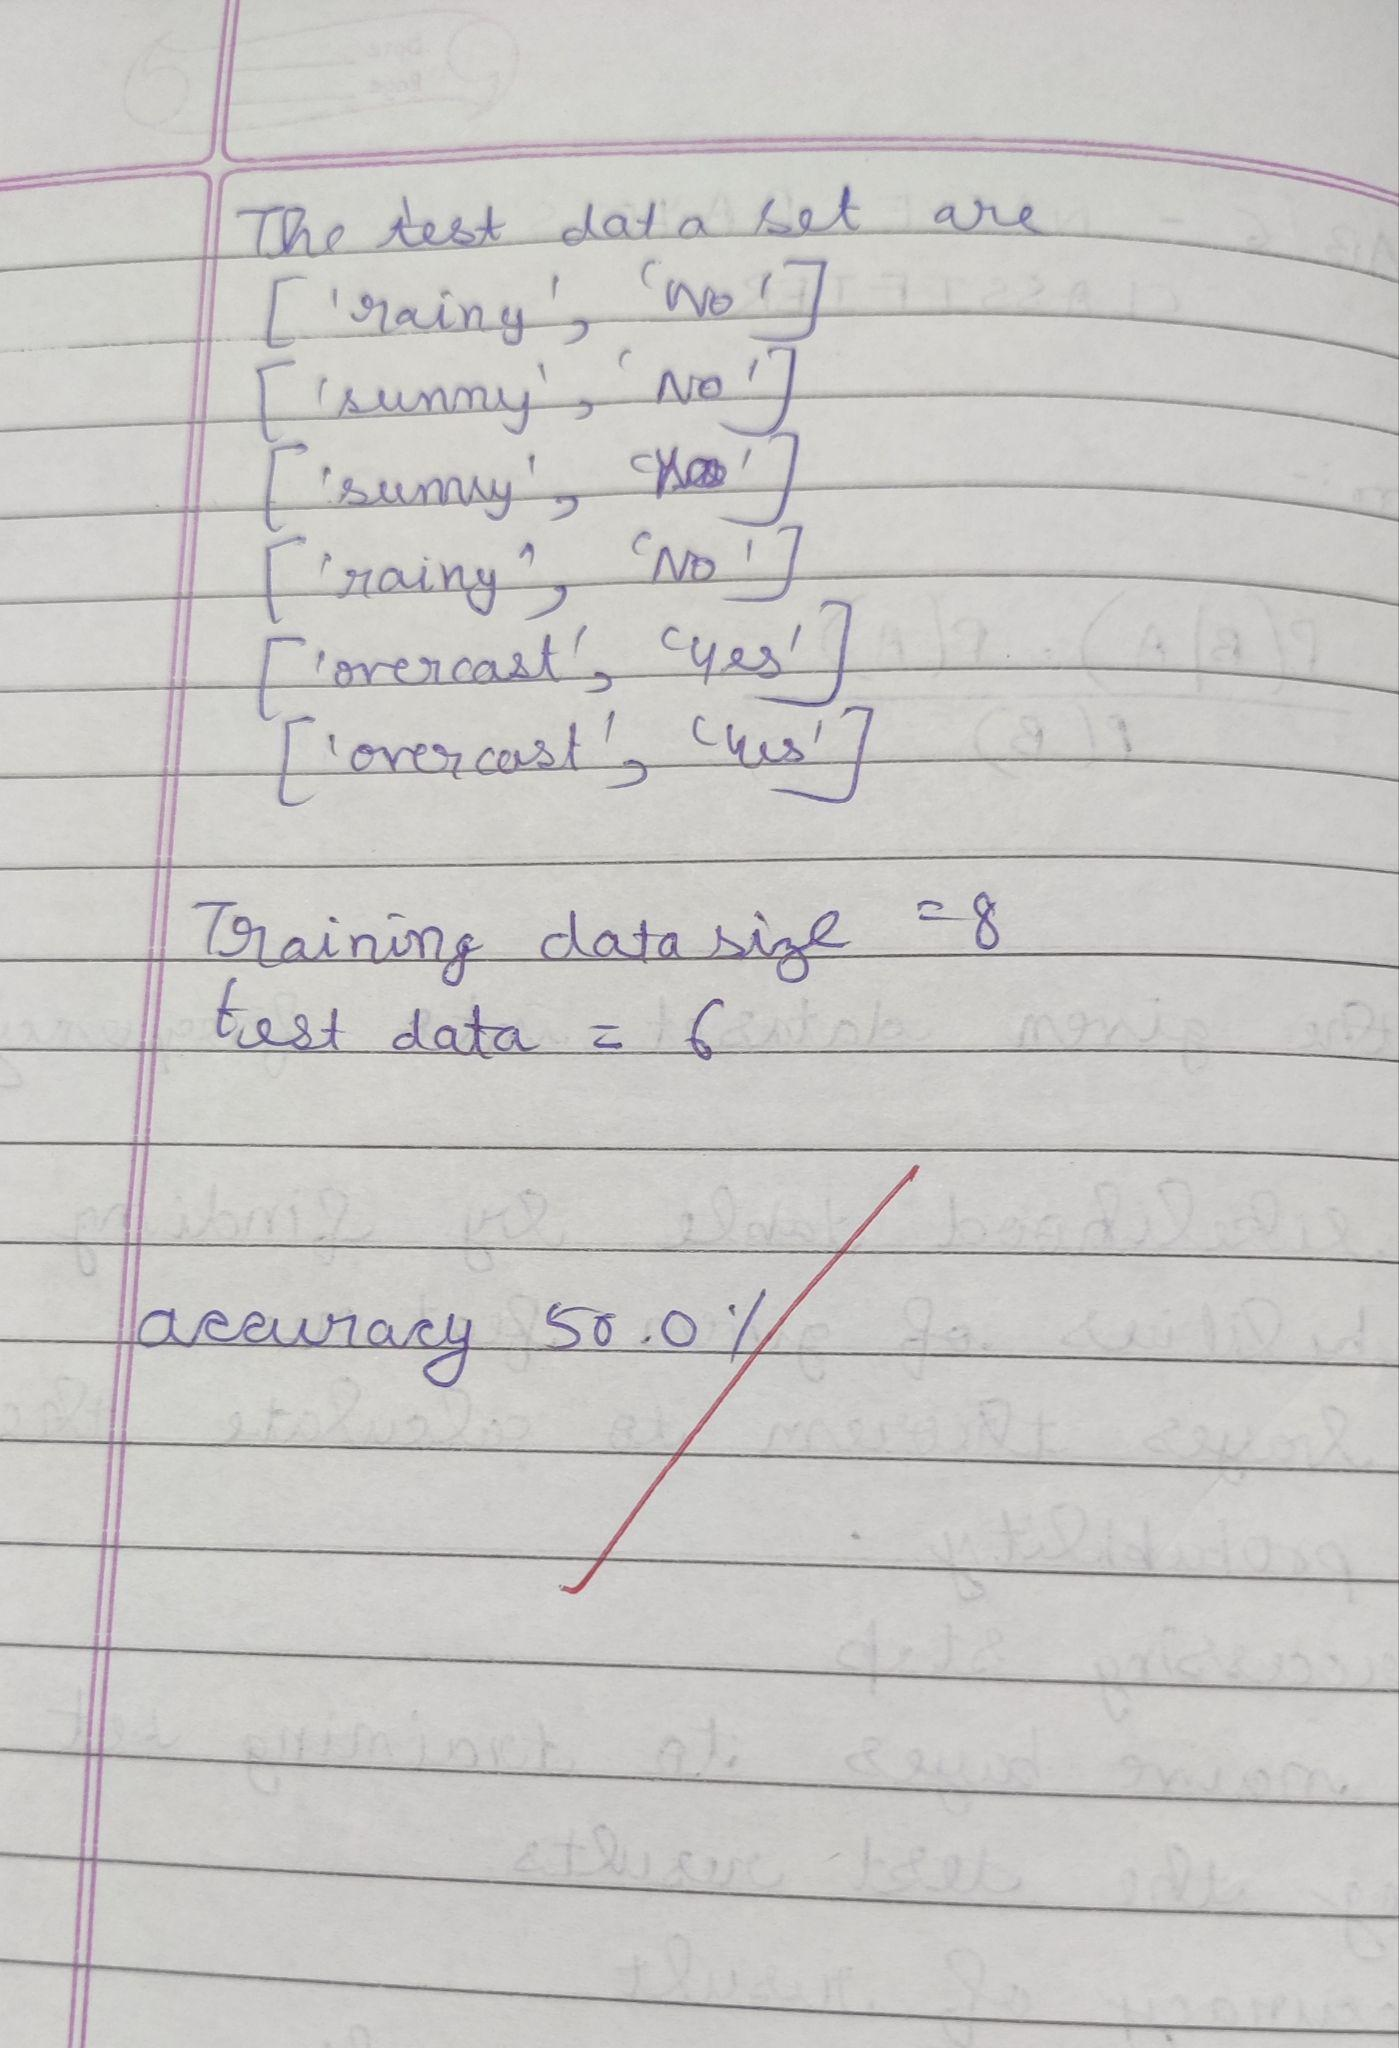 The test data set are
['rainy', 'No']
['sunny', 'No']
['sunny', ']
['rainy', 'No']
['overcast', 'yes']
['overcast', 'yes']
Training data size = 8
test data = 6
accuracy 50.0%